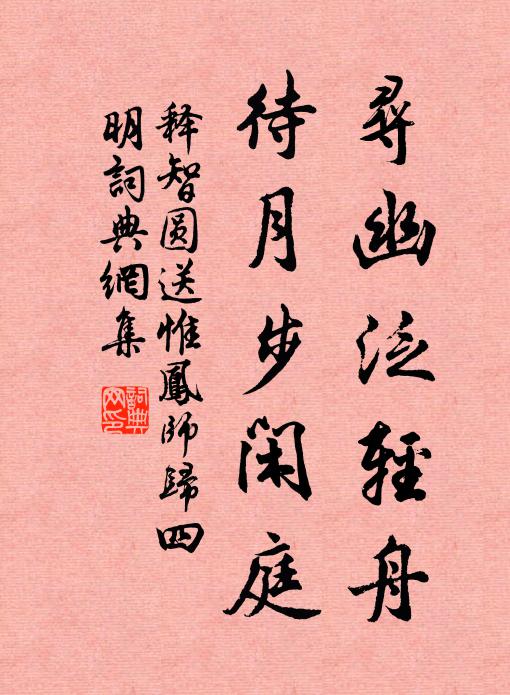 尋幽泛輕舟
待月步閑庭
释智圆送惟鳳師歸四
明詞典網集
詞典
网印